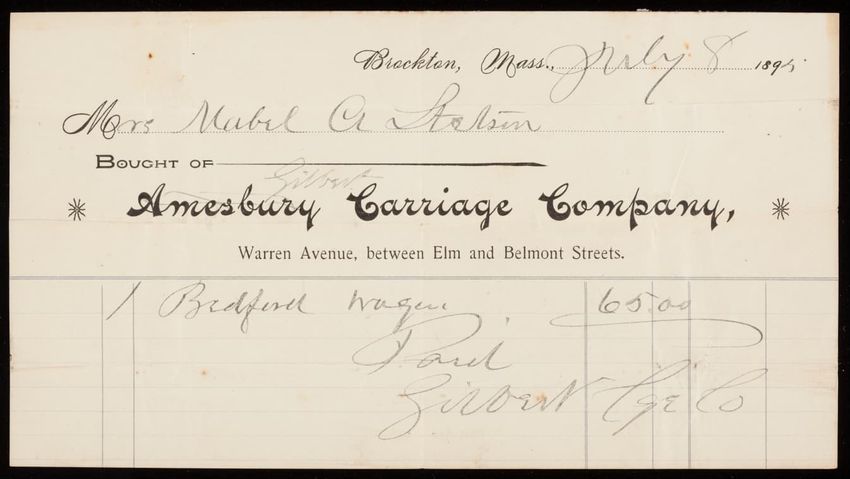 Brockton, Mass., July 8 1895
Mrs Mabel A Stetson
BOUGHT OF
Gilbert
Amesbury Carriage Company,
Warren Avenue, between Elm and Belmont Streets.
1 Bedford wagon 65.00
Paid
Gilbert Cge Co